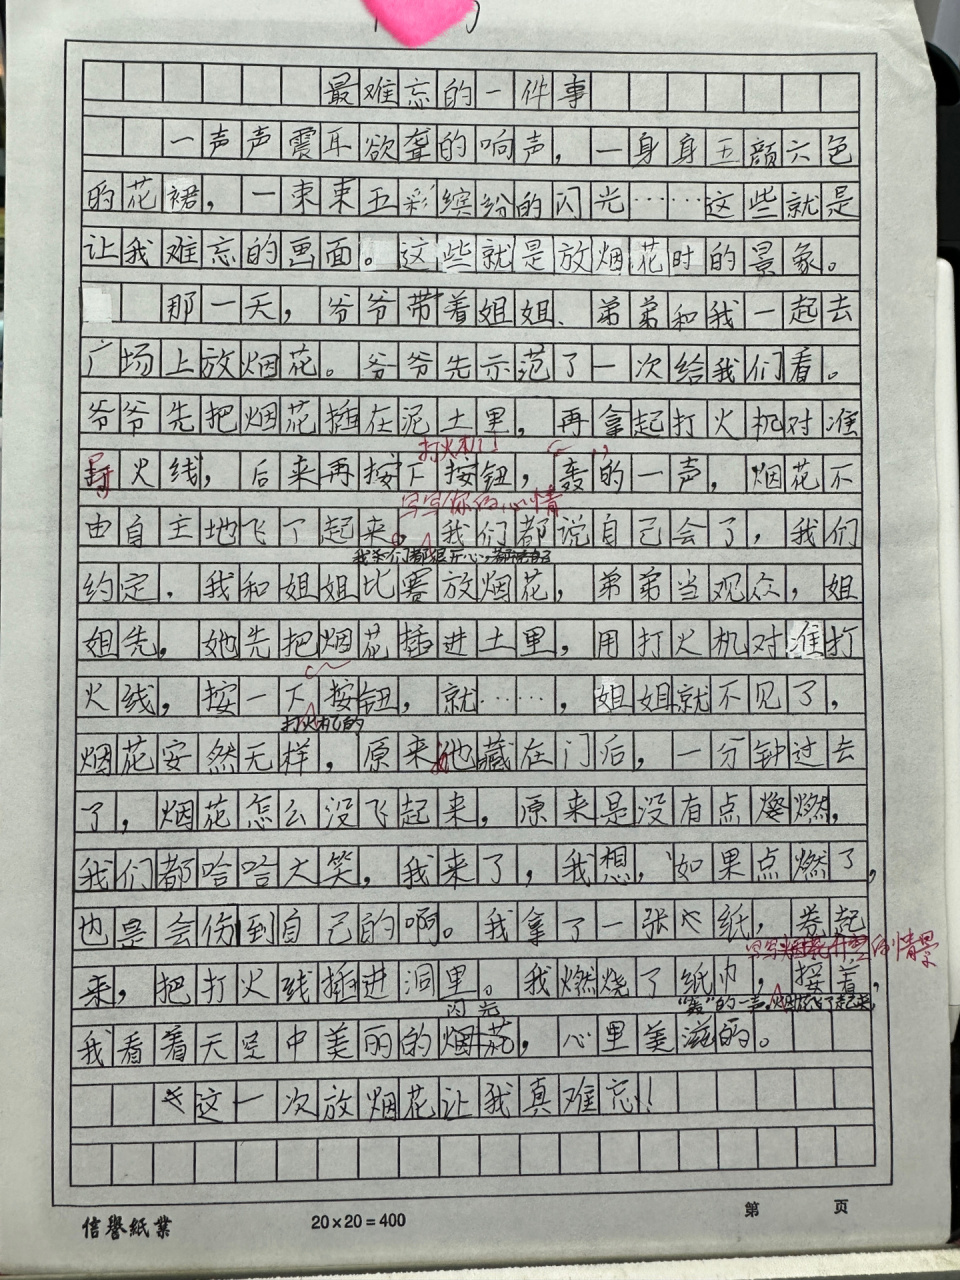 最难忘的一件事
一声声震耳欲聋的响声，一身身五颜六色
的花裙，一束束五彩缤纷的闪光……这些就是
让我难忘的画面。这些就是放烟花时的景象。
那一天，爷爷带着姐姐、弟弟和我一起去
广场上放烟花。爷爷先示范了一次给我们看。
爷爷先把烟花插在泥土里，再拿起打火机对准
打火机
火线，后来再按下按钮，轰的一声，烟花不
写写你的心情
由自主地飞了起来。我们都说自己会了，我们
我们都很开心，都
约定．我和姐姐比赛放烟花，弟弟当观众，姐
姐先，她先把烟花插进土里，用打火机对准打
火线，按一下按钮，就……，姐姐就不见了，
打火机的
烟花安然无样，原来她藏在门后，一分钟过去
了，烟花怎么没飞起来，原来是没有点燃，
我们都哈哈大笑，我来了，我想，如果点燃了，
也是会伤到自己的啊。我拿了一张纸，卷起
写写烟花升空的情景
来，把打火线插进洞里。我燃烧了纸巾，接着，
闪光
"轰"的一声，烟花飞了起来，
我看着天空中美丽的烟花，心里美滋的。
这一次放烟花让我真难忘！
信誉紙業
20×20=400
第 页